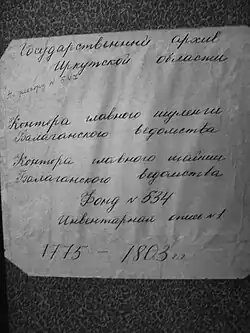 Государственный архив
Иркутской области
Контора главного шуленги
Балаганского ведомства
Контора главного тайши
Балаганского ведомства
Фонд № 534
Инвентарная опись № 1
1775 – 1803 гг